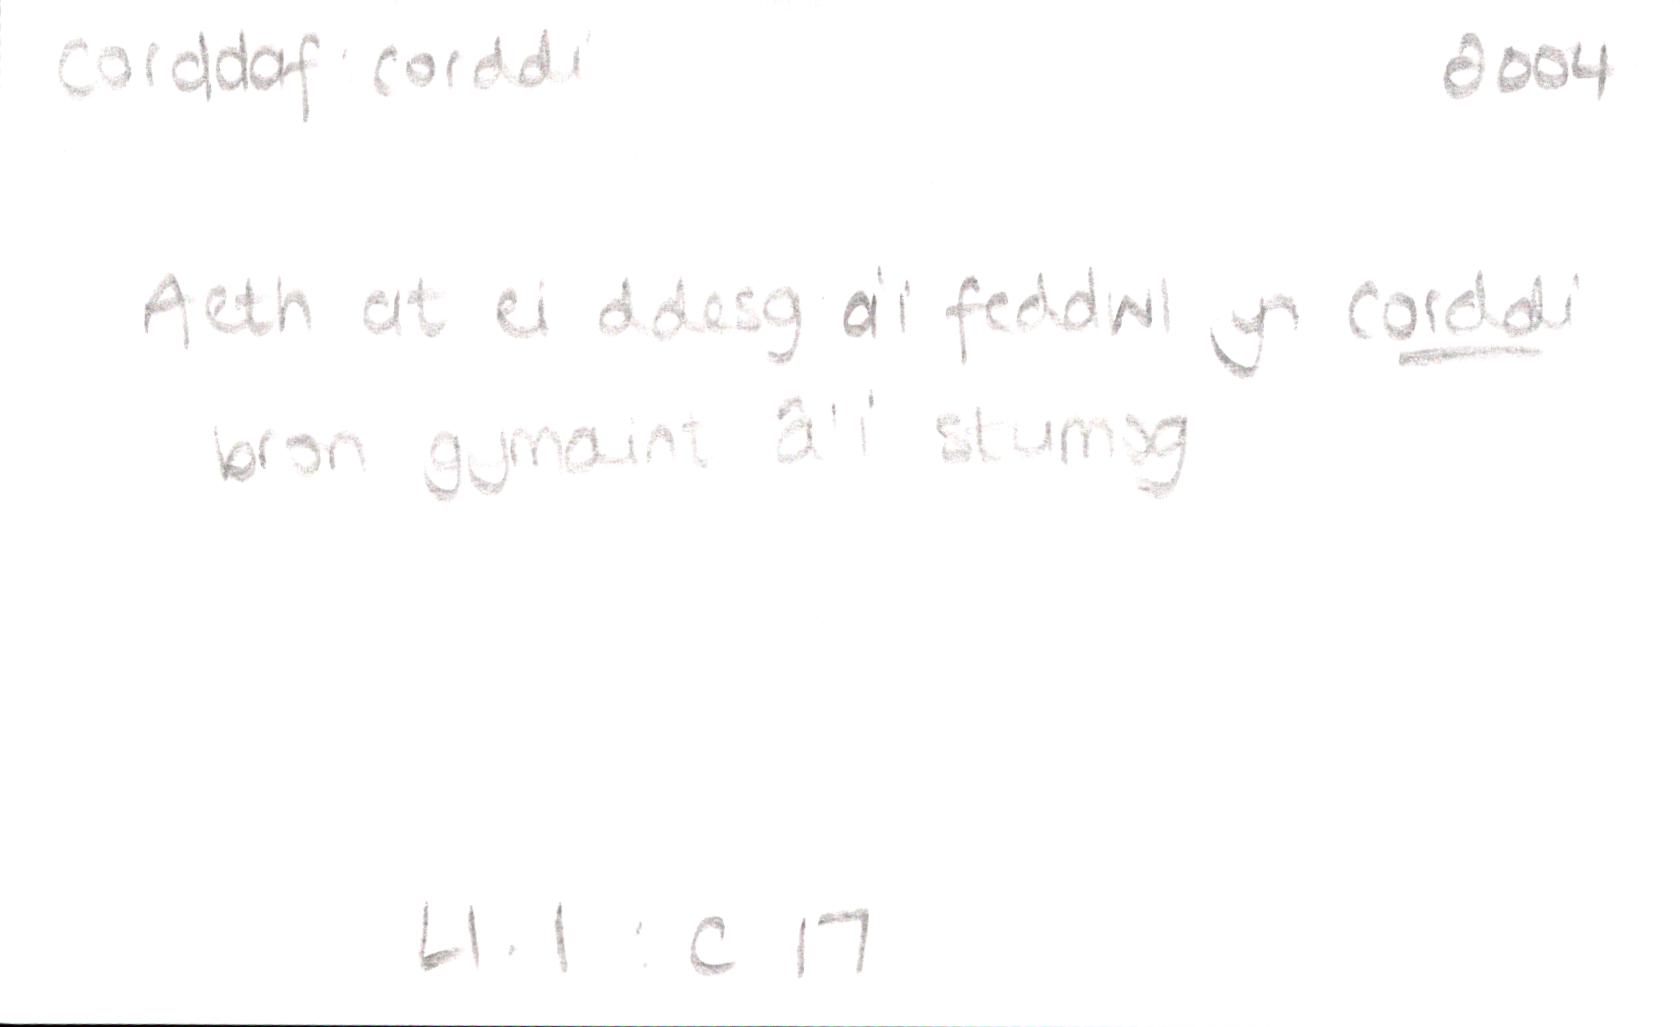 corddaf : corddi 2004
Aeth at ei ddesg a'i feddwl yn corddi
bron gymaint â'i stumog
Ll.1 : C 17